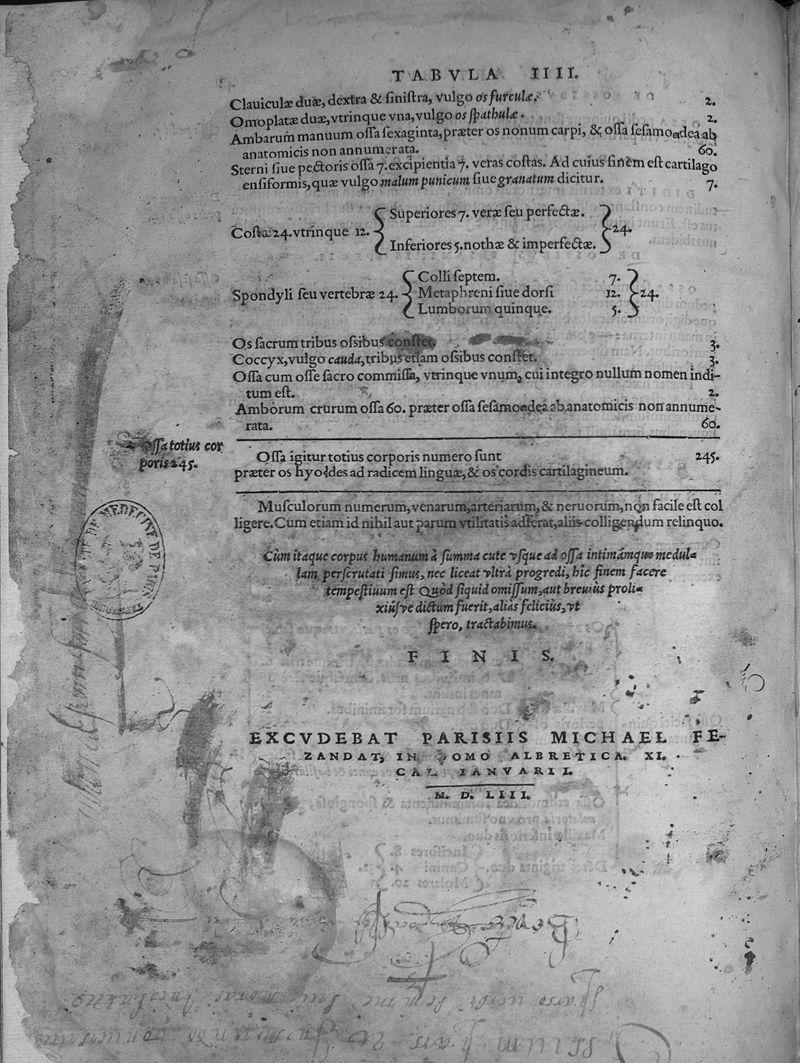 TABVLA IIII.
Clauiculæ duæ, dextra & siniſtra, vulgo os furculæ. 2.
Omoplatæ duæ, vtrinque vna, vulgo os ſpathulæ. 2.
Ambarum manuum oſſa ſexaginta, præter os nonum carpi, & oſſa ſeſamoœdea ab
anatomicis non annumerata. 60.
Sterni ſiue pectoris oſſa 7. excipientia 7. veras coſtas. Ad cuius finem eſt cartilago
enſiformis, quæ vulgo malum punicum ſiue granatum dicitur. 7.
Superiores 7. veræ ſeu perfectæ.
Coſtæ 24. vtrinque 12. 24.
Inferiores 5. nothæ & imperfectæ.
Colli ſeptem. 7.
Spondyli ſeu vertebræ 24. Metaphreni ſiue dorſi 12. 24.
Lumborum quinque. 5.
Os ſacrum tribus oſsibus conſtet. 3.
Coccyx, vulgo cauda, tribus etiam oſsibus conſtet. 3.
Oſſa cum oſſe ſacro commiſſa, vtrinque vnum, cui integro nullum nomen indi-
tum eſt. 2.
Amborum crurum oſſa 60. præter oſſa ſeſamoœdea ab anatomicis non annume-
rata. 60.
Oſſa totius cor
poris 245.
Oſſa igitur totius corporis numero ſunt 245.
præter os hyoïdes ad radicem linguæ, & os cordis cartilagineum.
Muſculorum numerum, venarum, arteriarum, & neruorum, non facile eſt col
ligere. Cum etiam id nihil aut parum vtilitatis adferat, aliis colligendum relinquo.
Cùm itaque corpus humanum à ſumma cute vſque ad oſſa intimámque medul-
lam perſcrutati ſimus, nec liceat vltrà progredi, hîc finem facere
tempeſtiuum eſt Quòd ſiquid omiſſum, aut breuiùs proli-
xiúſve dictum fuerit, aliàs feliciùs, vt
ſpero, tractabimus.
FINIS.
EXCVDEBAT PARISIIS MICHAEL FE-
ZANDAT, IN DOMO ALBRETICA. XI.
CAL. IANVARII.
M. D. LIII.